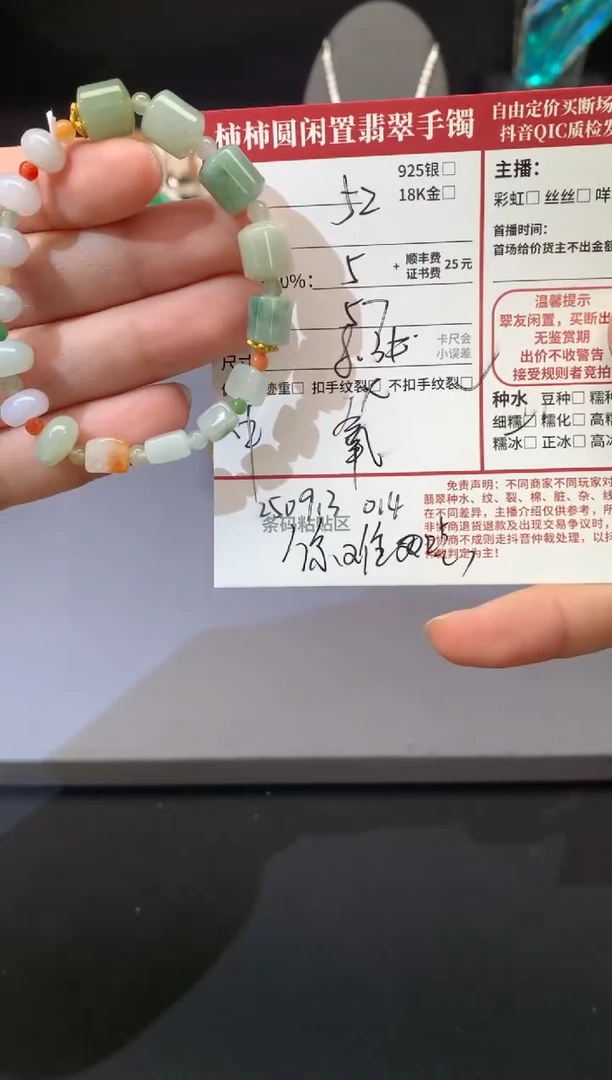 柿柿圆闲置翡翠手镯
自由定价买断场
抖音QIC质检发
925银□
18K金□
52
0%： 5 + 顺丰费 证书费 25元
57
尺寸 8.3 卡尺会 小误差
迹重□ 扣手纹裂 不扣手纹裂□
氧
250913 014
条码粘贴区
主播：
彩虹□ 丝丝□ 咩
首播时间：
首场给价货主不出金额
温馨提示
翠友闲置，买断出
无鉴赏期
出价不收警告
接受规则者竞拍
种水 豆种□ 糯种
细糯 糯化□ 高糯
糯冰□ 正冰□ 高冰
免责声明：不同商家不同玩家对
翡翠种水、纹、裂、棉、脏、杂、线
在不同差异，主播介绍仅供参考，所
非协商退货退款及出现交易争议时，
协商不成则走抖音仲裁处理，以抖
判定为主！